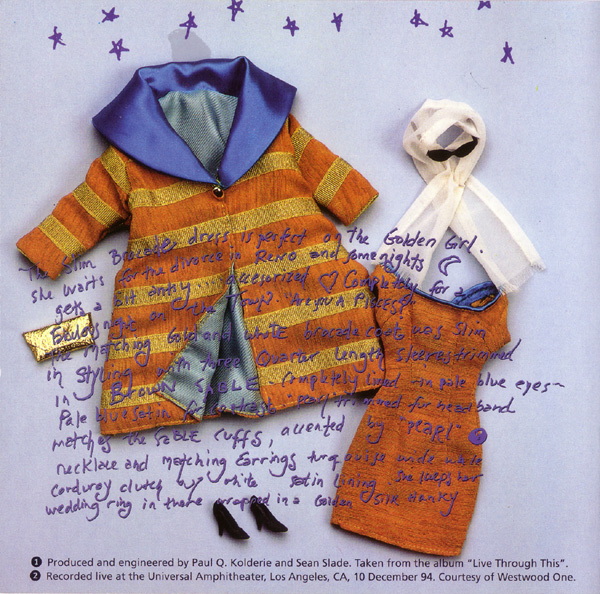 The Slim Brocade dress is perfect on the Golden Girl.
she waits for the divorce in Reno and some nights
gets a bit antsy accessorized Completely for a
Fabulous night on the Town? "Are you A Pisces?"
the matching Gold and white brocade coat, was Slim
in Styling with three Quarter length sleeves trimmed
in BROWN SABLE - completely lined - in pale blue eyes -
Pale blue satin for contrast trimmed fur head band
matches the SABLE CUFFS, accented by "PEARL"
necklace and matching Earrings turquoise wide wale
corduroy clutch w/ white satin lining She keeps her
wedding ring in there wrapped in a Golden Silk Hanky
1 Produced and engineered by Paul Q. Kolderie and Sean Slade. Taken from the album "Live Through This".
2 Recorded live at the Universal Amphitheater, Los Angeles, CA, 10 December 94. Courtesy of Westwood One.